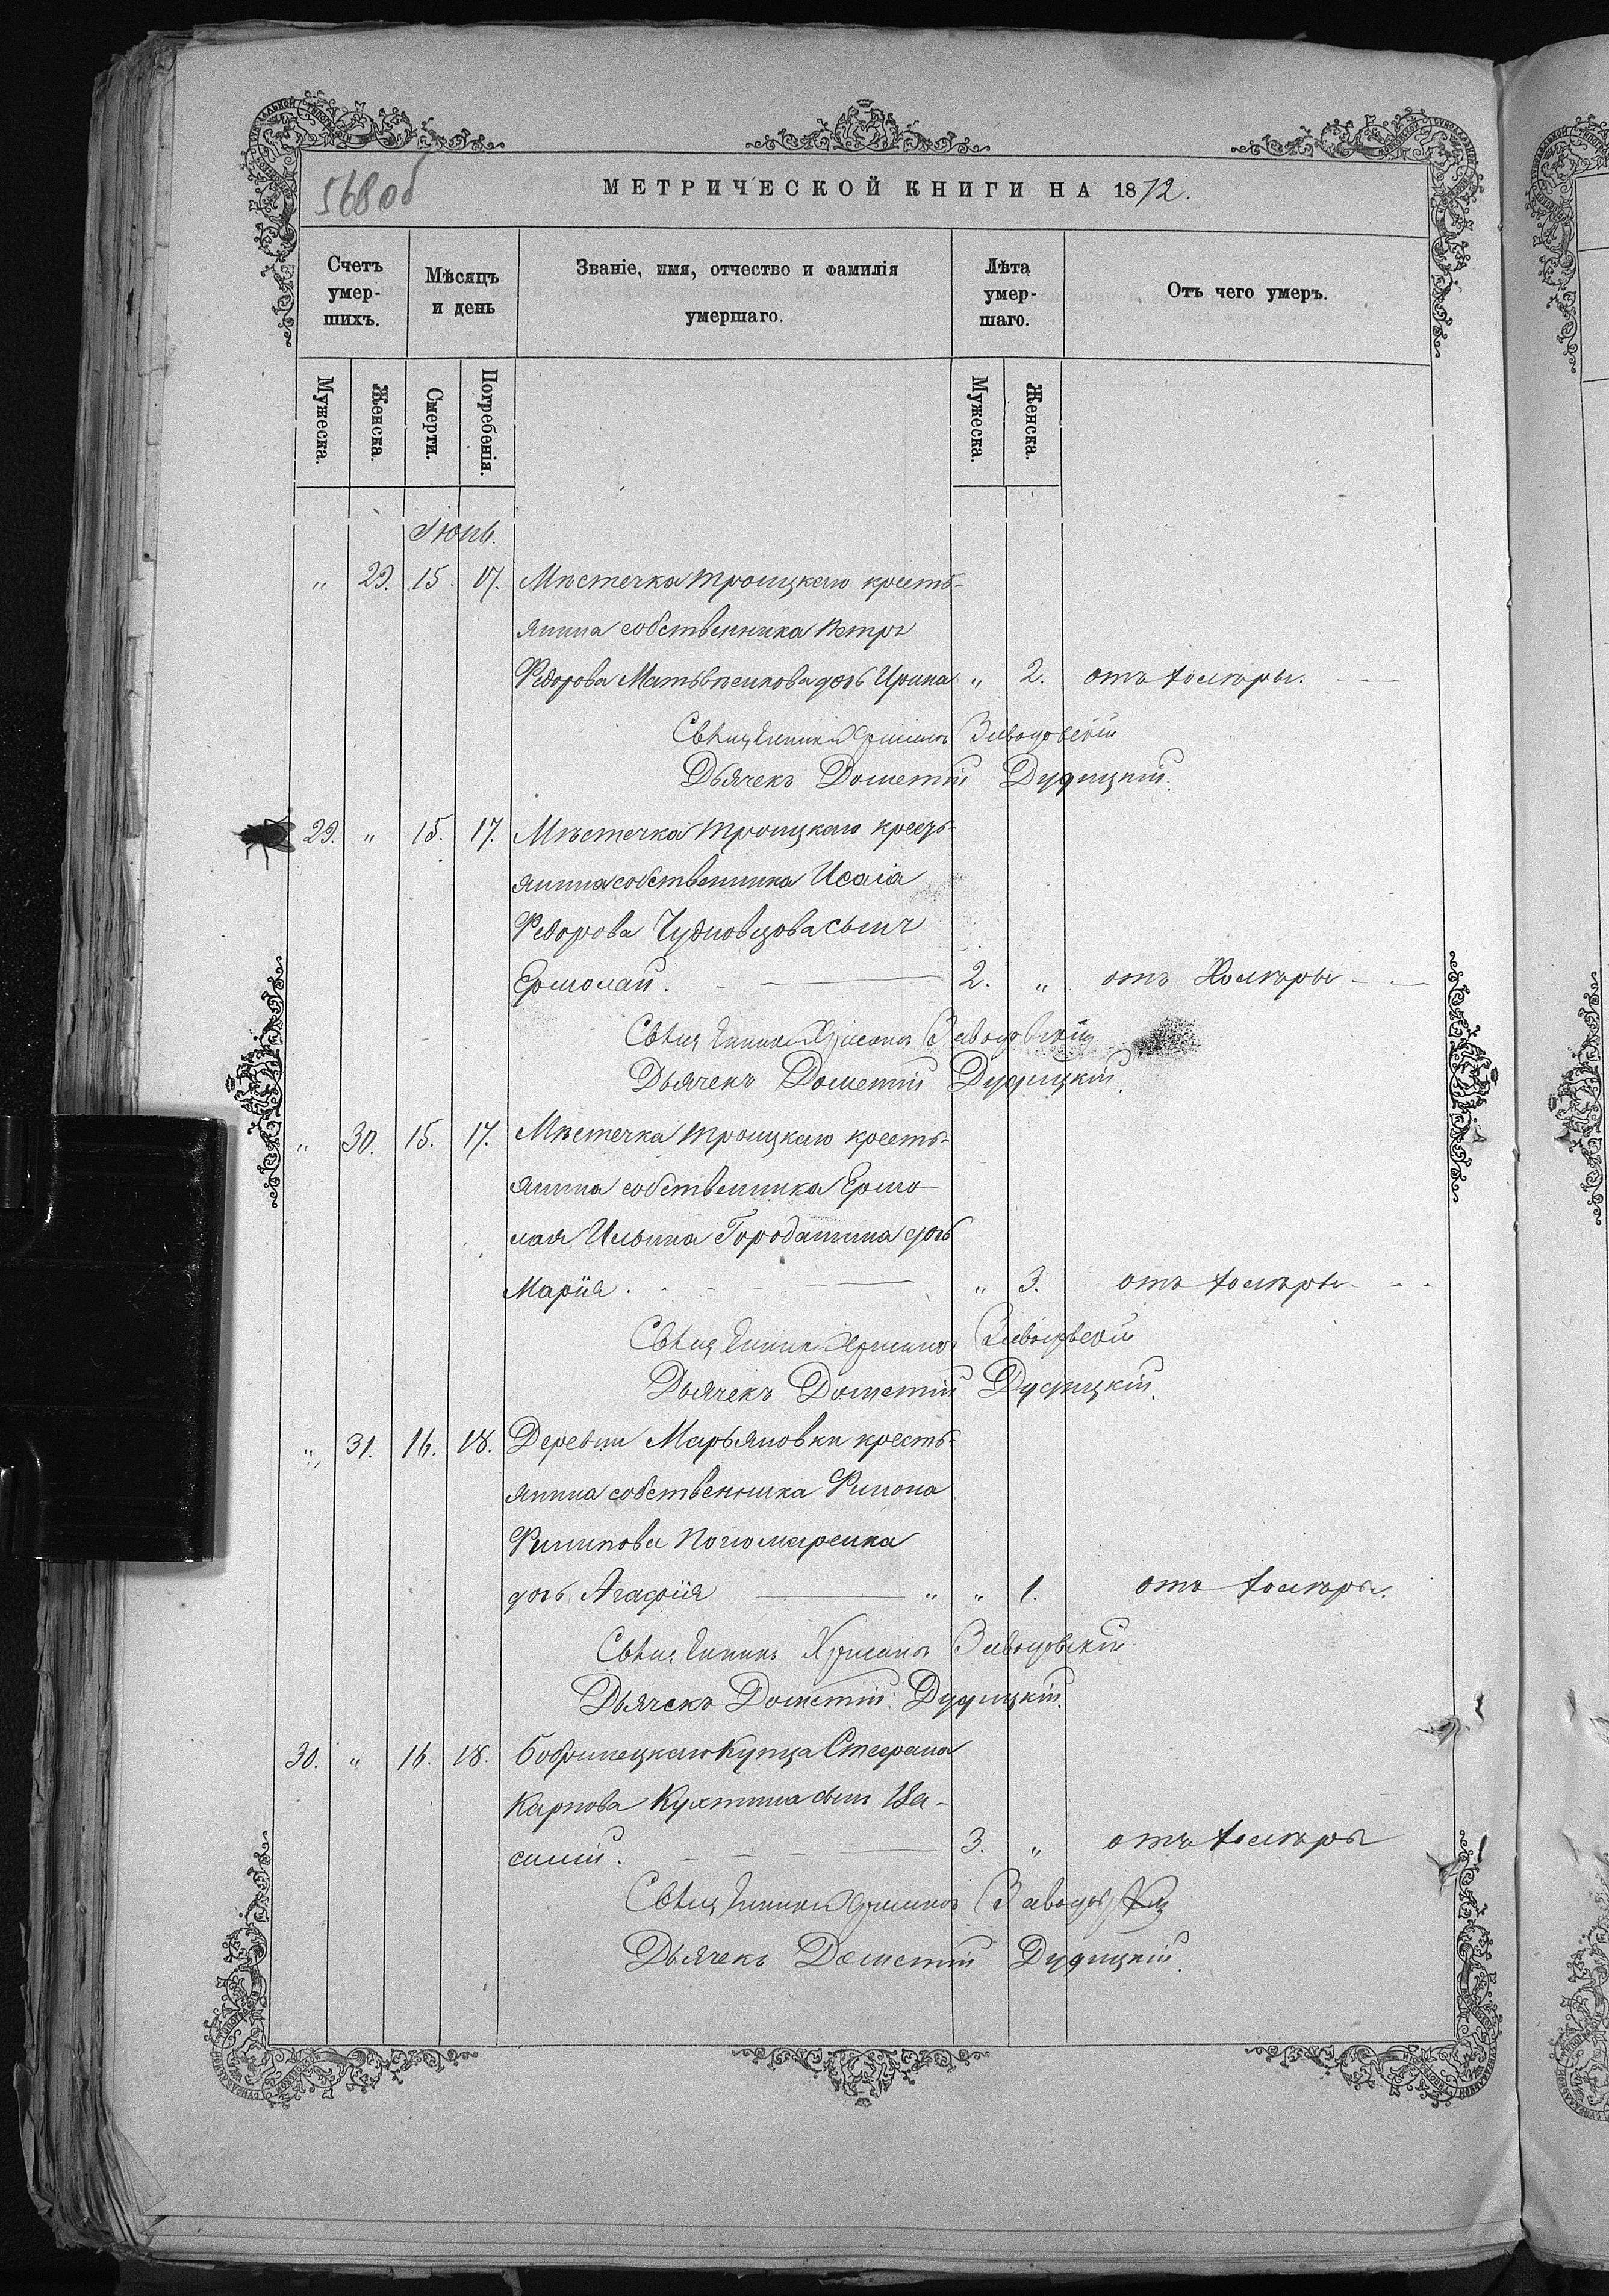 568 об
МЕТРИЧЕСКОЙ КНИГИ НА 1872.
Счетъ умер-шихъ.
Мѣсяцъ и день
Званіе, имя, отчество и фамилія
умершаго.
Лѣта умер-шаго.
Отъ чего умеръ.
Мужеска.
Женска.
Смерти.
Погребенія.
Мужеска.
Женска.
Іюнь.
" 29. 15. 17. Мѣстечка Троицкаго кресть-
янина собственника Петра
Ѳедорова Матвѣенкова дочь Ирина " 2. отъ холеры.
Священникъ Хрисанѳъ Заводовскій
Дьячекъ Дометій Дудицкій.
29. " 15. 17. Мѣстечка Троицкаго кресть-
янина собственника Исаіа
Ѳедорова Чудновцова сынъ
Ермолай. 2. " отъ Холеры
Священникъ Хрисанѳъ Заводовскій
Дьячекъ Дометій Дудицкій.
" 30. 15. 17. Мѣстечка Троицкаго кресть-
янина собственника Ермо-
лая Ильина Городанина дочь
Марія. " 3. отъ холеры
Священникъ Хрисанѳъ Заводовскій
Дьячекъ Дометій Дудицкій.
" 31. 16. 18. Деревни Марьяновки кресть-
янина собственника Филипа
Филипова Пономаренка
дочь Агафія " " 1. отъ холеры.
Священникъ Хрисанѳъ Заводовскій
Дьячекъ Дометій Дудицкій.
30. " 16. 18. Бобринецкаго Купца Стефана
Карпова Кухтина сынъ Ва-
силій. 3. " отъ холеры
Священникъ Хрисанѳъ
Дьячекъ Дометій Дудицкій.